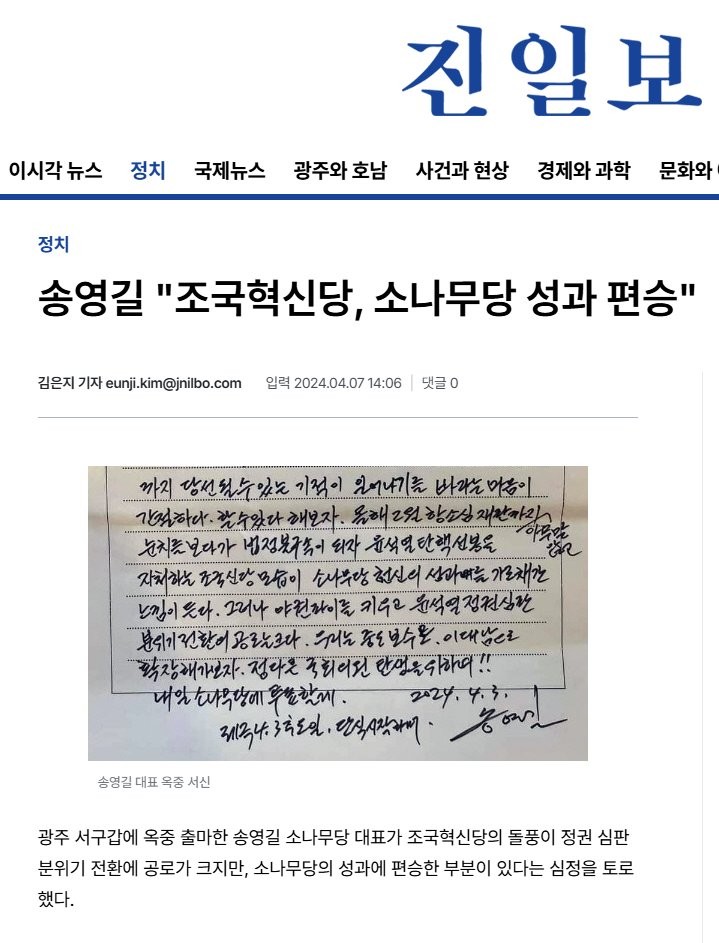 진일보
이시각 뉴스 정치 국제뉴스 광주와 호남 사건과 현상 경제와 과학 문화와
정치
송영길 "조국혁신당, 소나무당 성과 편승"
김은지 기자 eunji.kim@jnilbo.com 입력 2024.04.07 14:06 댓글 0
까지 당선될 수 있는 기적이 일어나기를 바라는 마음이
간절하다. 할 수 있다 해보자. 올해 2월 항소심 재판까지 아무말 않고
눈치를 보다가 법정불구속이 되자 윤석열 탄핵 선봉을
자처하는 조국신당 모습이 소나무당 헌신의 성과를 가로채간
느낌이 든다. 그러나 야권 파이를 키우고 윤석열 정권 심판
분위기 전환에 공로는 크다. 우리는 중도보수로. 이대남으로
확장해가보자. 정다운 국회의원 탄생을 위하여!!
내일 소나무당에 투표할게. 2024. 4. 3.
제주 4.3 추도일. 단식 시작하며. 송영길
송영길 대표 옥중 서신
광주 서구갑에 옥중 출마한 송영길 소나무당 대표가 조국혁신당의 돌풍이 정권 심판
분위기 전환에 공로가 크지만, 소나무당의 성과에 편승한 부분이 있다는 심정을 토로
했다.